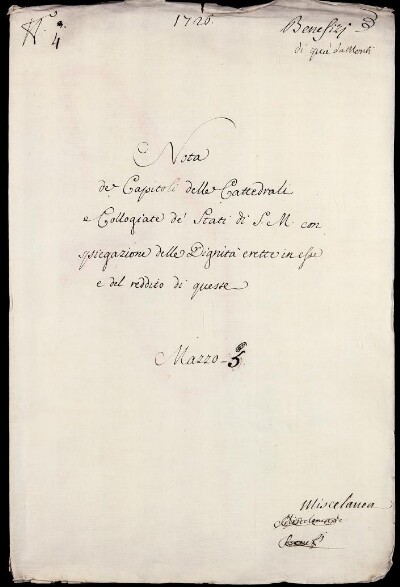 N.º 4
1726.
Benefizj
di quà da Monti
Nota
de' Capitoli delle Cattedrali
e Collogiate de' Stati di S. M. con
spiegazione delle Dignità erette in esse
e del reddito di quesse
Mazzo 5
Miscelanea